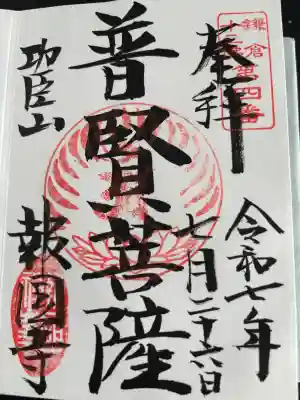 鎌倉
十三佛第四番
奉拝
令和七年
七月二十六日
普賢菩薩
功臣山
報国寺